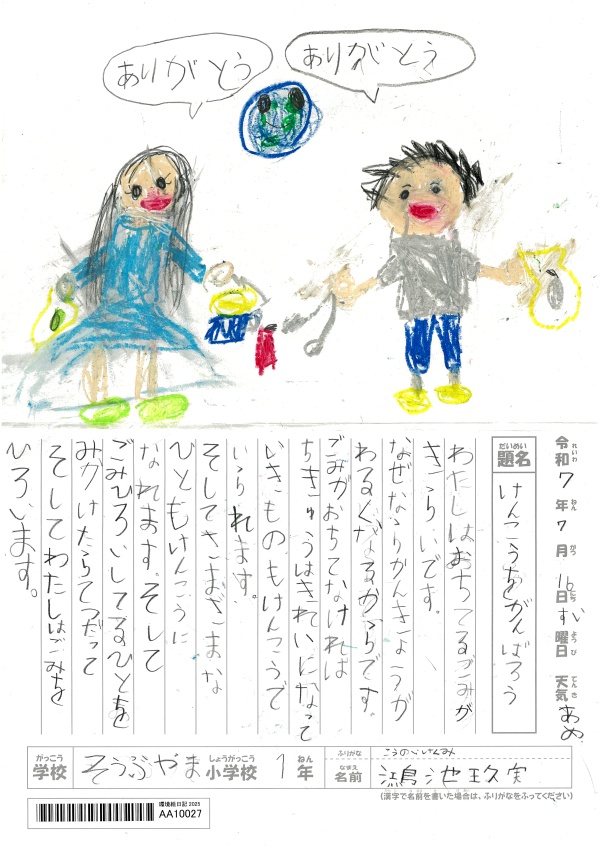 ありがとう
ありがとう
令和7年7月16日すい曜日 天気 あめ
れいわ ねん がつ にち ようび てんき
だいめい
題名
けんこうをがんばろう
わたしはおちてるごみが
きらいです。
なぜならかんきょうが
わるくなるからです。
ごみがおちてなければ
ちきゅうはきれいになって
いきものもけんこうで
いられます。
そしてさまざまな
ひともけんこうに
なれます。そして
ごみひろいしてるひとを
みかけたらてつだって
そしてわたしはごみを
ひろいます。
がっこう
学校
そうぶやま
しょうがっこう
小学校
1
ねん
年
ふりがな
こうのいけくみ
なまえ
名前
鴻池玖実
(漢字で名前を書いた場合は、ふりがなをふってください)
環境絵日記 2025
AA10027